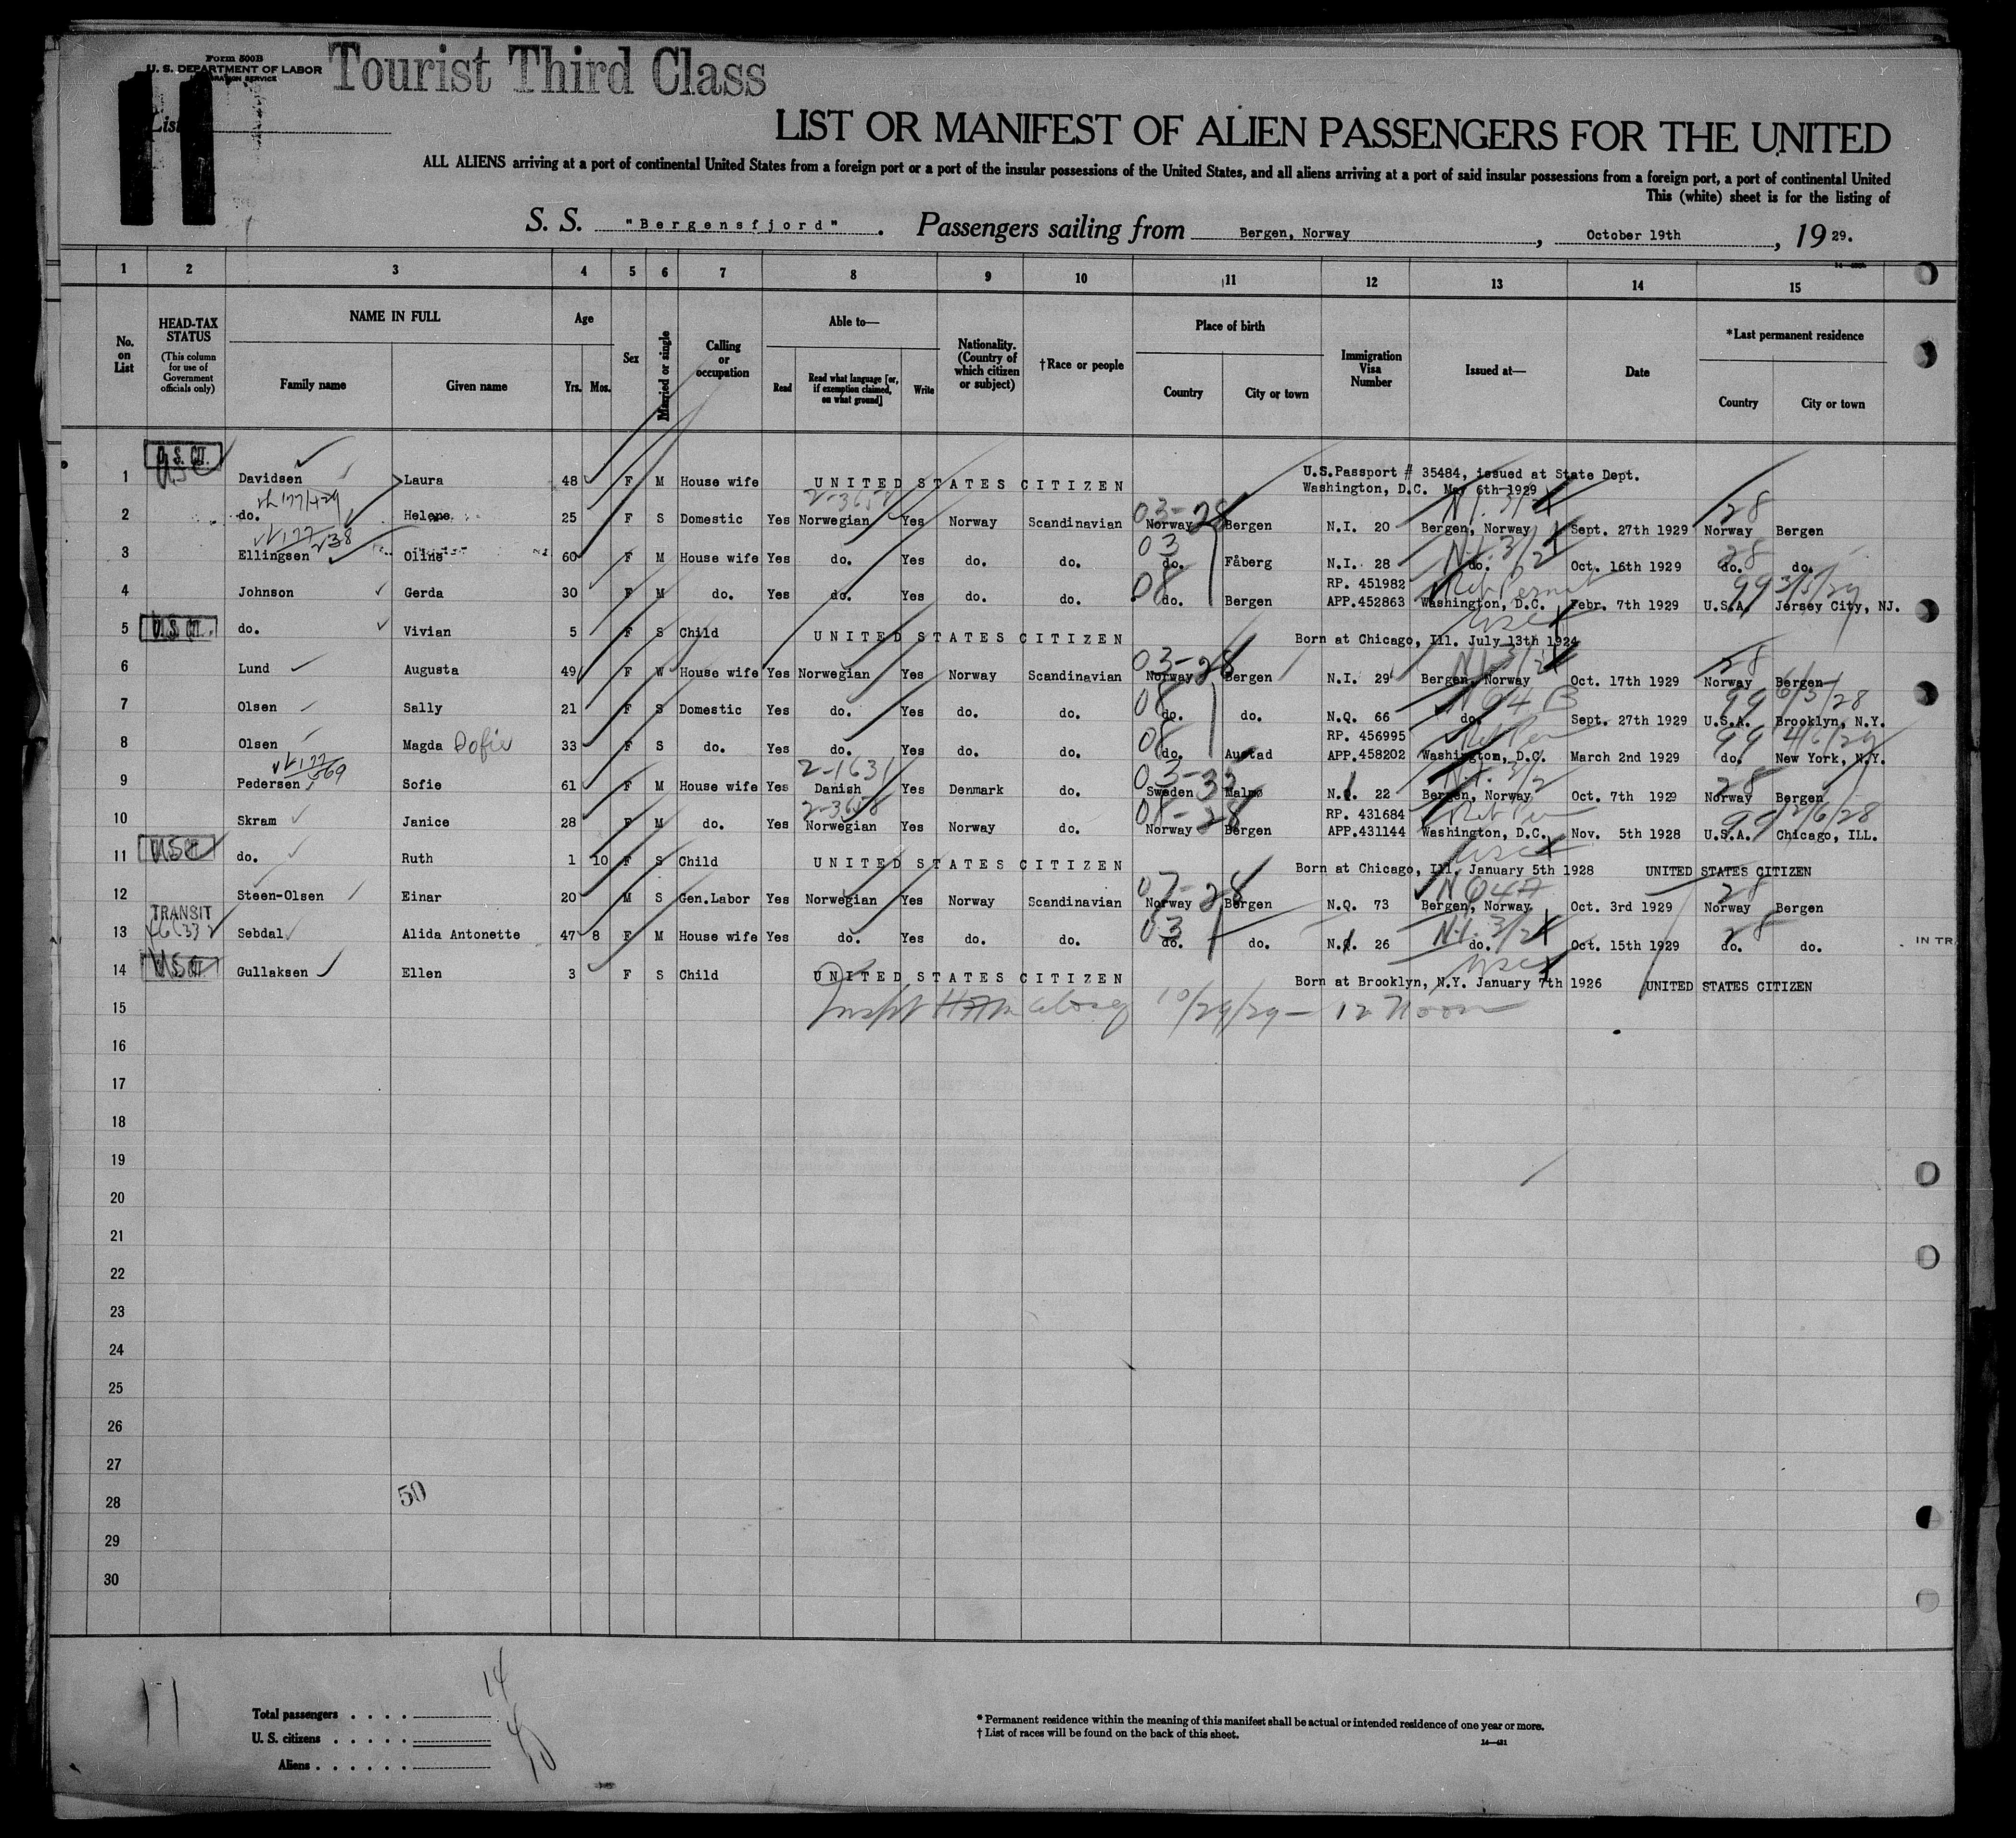 Form 500B
U. S. DEPARTMENT OF LABOR
IMMIGRATION SERVICE
Tourist Third Class
11
List
LIST OR MANIFEST OF ALIEN PASSENGERS FOR THE UNITED
ALL ALIENS arriving at a port of continental United States from a foreign port or a port of the insular possessions of the United States, and all aliens arriving at a port of said insular possessions from a foreign port, a port of continental United
This (white) sheet is for the listing of
S. S. "Bergensfjord". Passengers sailing from Bergen, Norway, October 19th, 1929.
1 2 3 4 5 6 7 8 9 10 11 12 13 14 15
No. on List
HEAD-TAX STATUS (This column for use of Government officials only)
NAME IN FULL
Family name Given name
Age
Yrs. Mos.
Sex
Married or single
Calling or occupation
Able to—
Read Read what language [or, if exemption claimed, on what ground] Write
Nationality. (Country of which citizen or subject)
†Race or people
Place of birth
Country City or town
Immigration Visa Number
Issued at—
Date
*Last permanent residence
Country City or town
1 U. S. CIT. Davidsen Laura 48 F M House wife UNITED STATES CITIZEN U.S.Passport # 35484, issued at State Dept. Washington, D.C. May 6th 1929
2-3658 03-28 N.I. 3/2 28
2 do. Helene 25 F S Domestic Yes Norwegian Yes Norway Scandinavian Norway Bergen N.I. 20 Bergen, Norway Sept. 27th 1929 Norway Bergen
03 N.I. 3/2 28
3 Ellingsen Oline 60 F M House wife Yes do. Yes do. do. do. Fåberg N.I. 28 do. Oct. 16th 1929 do. do.
08 Ret Permit 99 3/5/29
4 Johnson Gerda 30 F M do. Yes do. Yes do. do. do. Bergen RP. 451982 APP.452863 Washington, D.C. Febr. 7th 1929 U.S.A. Jersey City, NJ.
5 U.S. CIT. do. Vivian 5 F S Child UNITED STATES CITIZEN Born at Chicago, Ill. July 13th 1924
USC
03-28 N.I. 3/2 28
6 Lund Augusta 49 F W House wife Yes Norwegian Yes Norway Scandinavian Norway Bergen N.I. 29 Bergen, Norway Oct. 17th 1929 Norway Bergen
08 99 6/5/28
7 Olsen Sally 21 F S Domestic Yes do. Yes do. do. do. do. N.Q. 66 do. Sept. 27th 1929 U.S.A. Brooklyn, N.Y.
08 99 4/6/29
8 Olsen Magda Sofie 33 F S do. Yes do. Yes do. do. do. Austad RP. 456995 APP.458202 Washington, D.C. March 2nd 1929 do. New York, N.Y.
2-1631 03-35 N.I. 3/2 28
9 Pedersen Sofie 61 F M House wife Yes Danish Yes Denmark do. Sweden Malmø N.I. 22 Bergen, Norway Oct. 7th 1929 Norway Bergen
2-3658 08-28 Ret Per 99 12/6/28
10 Skram Janice 28 F M do. Yes Norwegian Yes Norway do. Norway Bergen RP. 431684 APP.431144 Washington, D.C. Nov. 5th 1928 U.S.A. Chicago, ILL.
11 USC do. Ruth 1 10 F S Child UNITED STATES CITIZEN Born at Chicago, Ill. January 5th 1928 UNITED STATES CITIZEN
USC
07-28 28
12 Steen-Olsen Einar 20 M S Gen.Labor Yes Norwegian Yes Norway Scandinavian Norway Bergen N.Q. 73 Bergen, Norway Oct. 3rd 1929 Norway Bergen
TRANSIT
03 N.I. 3/2 28
13 Sebdal Alida Antonette 47 8 F M House wife Yes do. Yes do. do. do. do. N.I. 26 do. Oct. 15th 1929 do. do. IN TR
14 U.S. CIT Gullaksen Ellen 3 F S Child UNITED STATES CITIZEN Born at Brooklyn, N.Y. January 7th 1926 UNITED STATES CITIZEN
USC
15 10/29/29 - 12 Noon
16
17
18
19
20
21
22
23
24
25
26
27
28 50
29
30
11
14
Total passengers
U. S. citizens 4
Aliens 10
* Permanent residence within the meaning of this manifest shall be actual or intended residence of one year or more.
† List of races will be found on the back of this sheet.
14—431